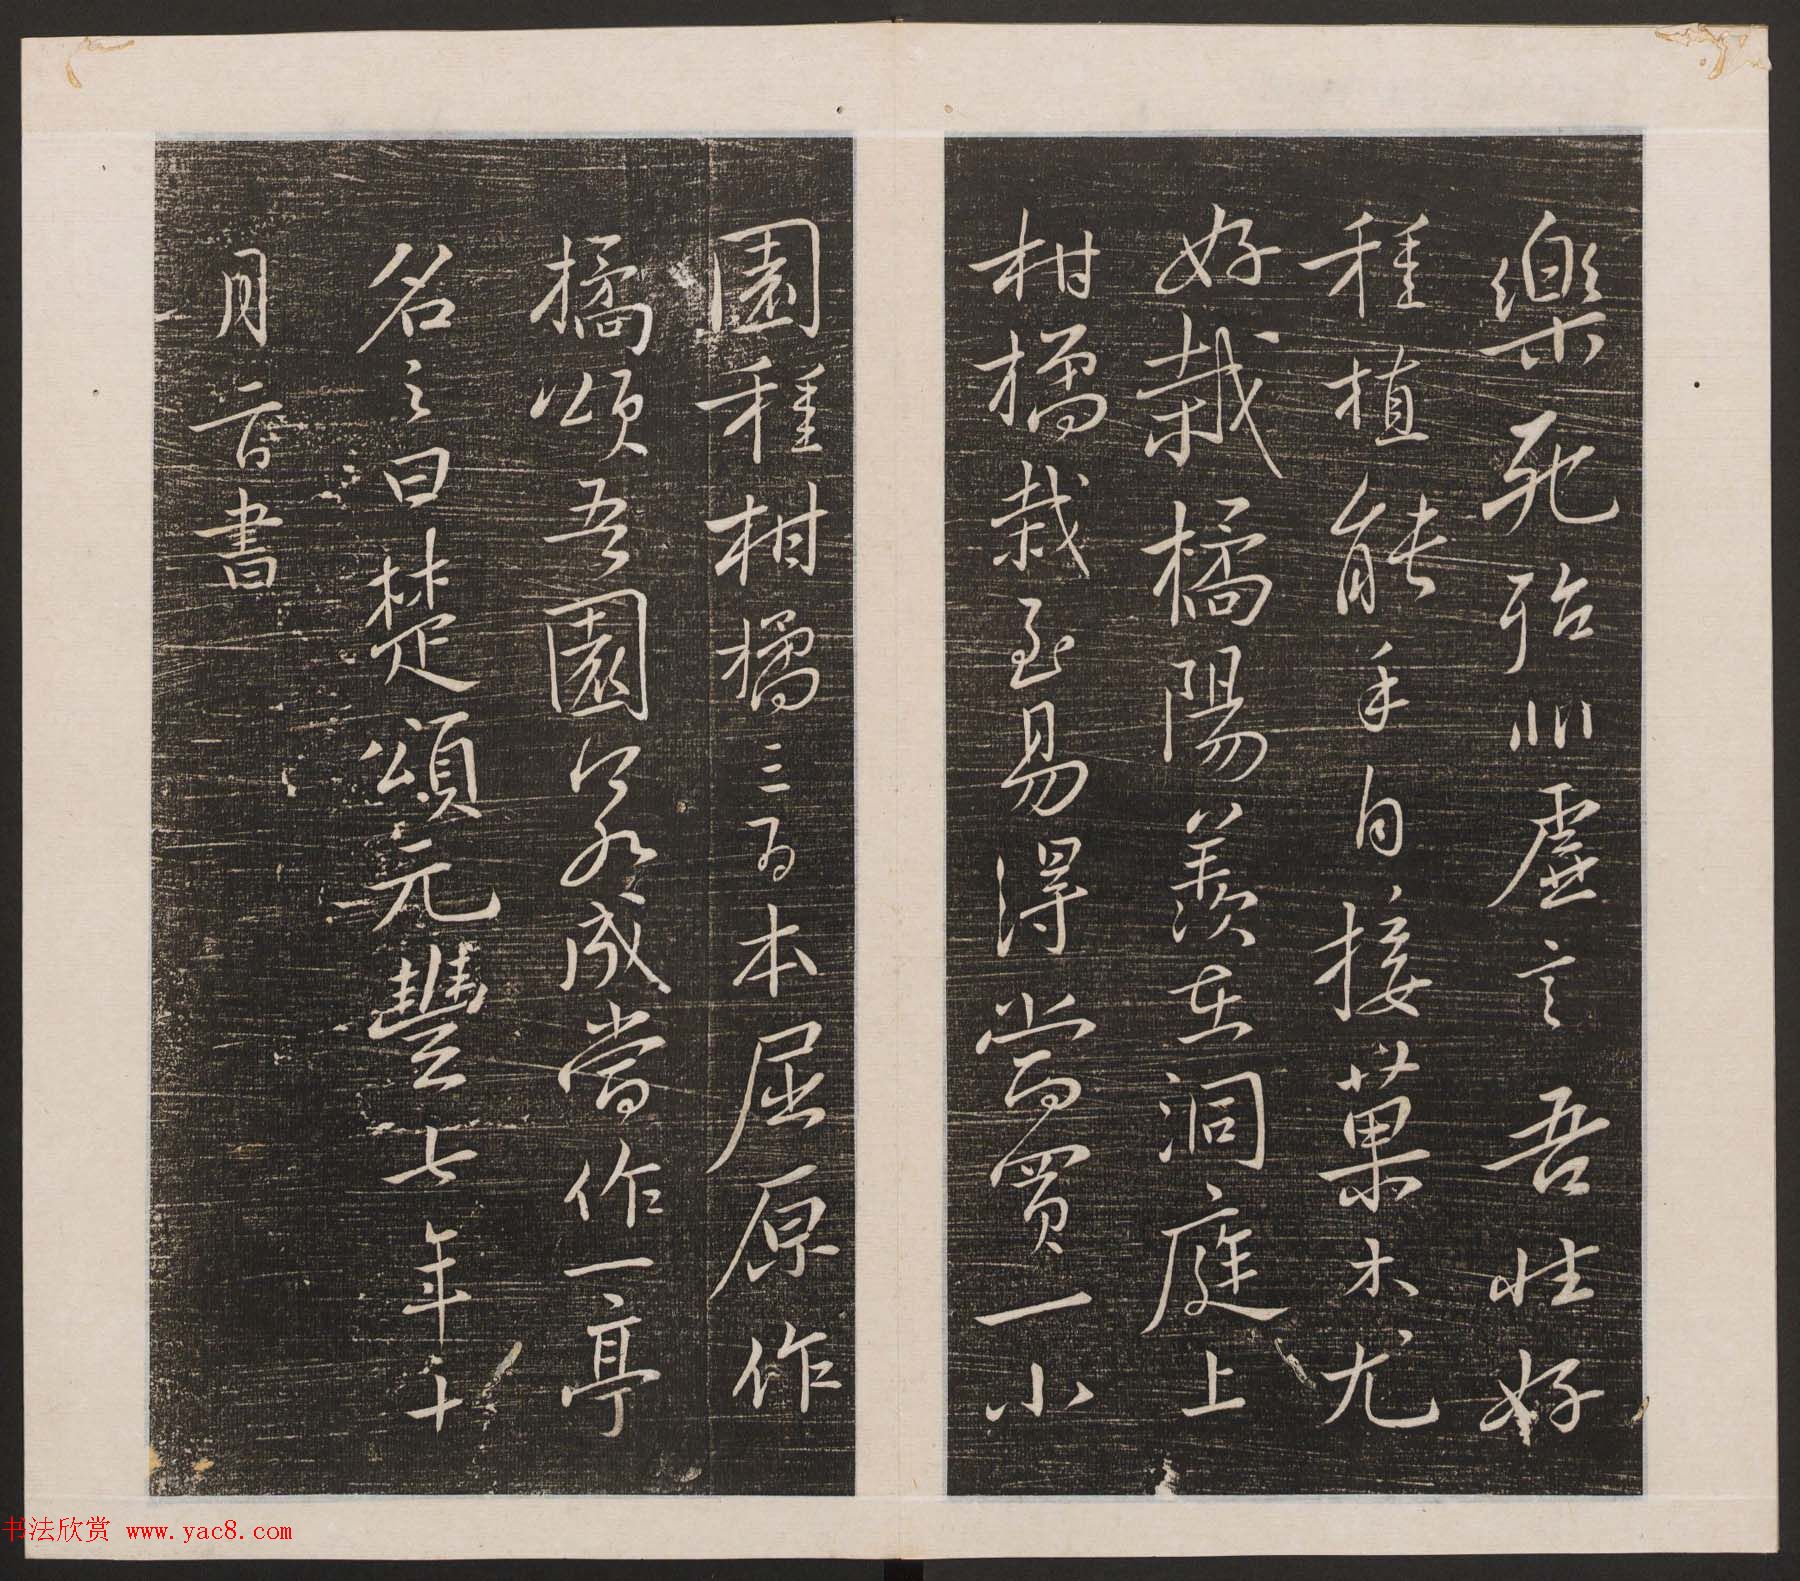 樂死殆非虛言吾性好
種植能手自接菓木尤
好栽橘陽羨在洞庭上
柑橘栽至易得當買一小
園種柑橘三百本屈原作
橘頌吾園成當作一亭
名之曰楚頌元豐七年十
月二日書
书法欣赏 www.yac8.com